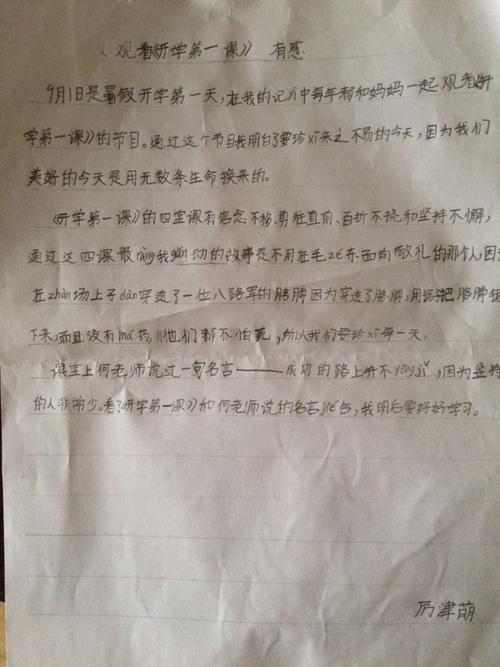 《观看《开学第一课》》有感
9月1日是暑假开学第一天,在我的记忆中每年都和妈妈一起观看《开
学第一课》的节目。通过这个节目我明白了要珍xī来之不易的今天,因为我们
美好的今天是用无数条生命换来的。
《开学第一课》的四堂课有信念不移、勇往直前、百折不挠和坚持不懈,
通过这四课最ràng我gǎn动的故事是不用在毛zé东面前敬礼的那个人,因为
在zhàn场上子dàn穿透了一位八路军的胳膊因为穿透了胳膊,用锯子把胳膊锯
下来,而且没有má药,但他们都不怕死,所以我们要珍xī每一天。
课堂上何老师说过一句名言———成功的路上并不yōngjǐ,因为坚持
的人非常少。看了《开学第一课》和何老师说的名言jié合,我明后要好好学习。
厉津萌